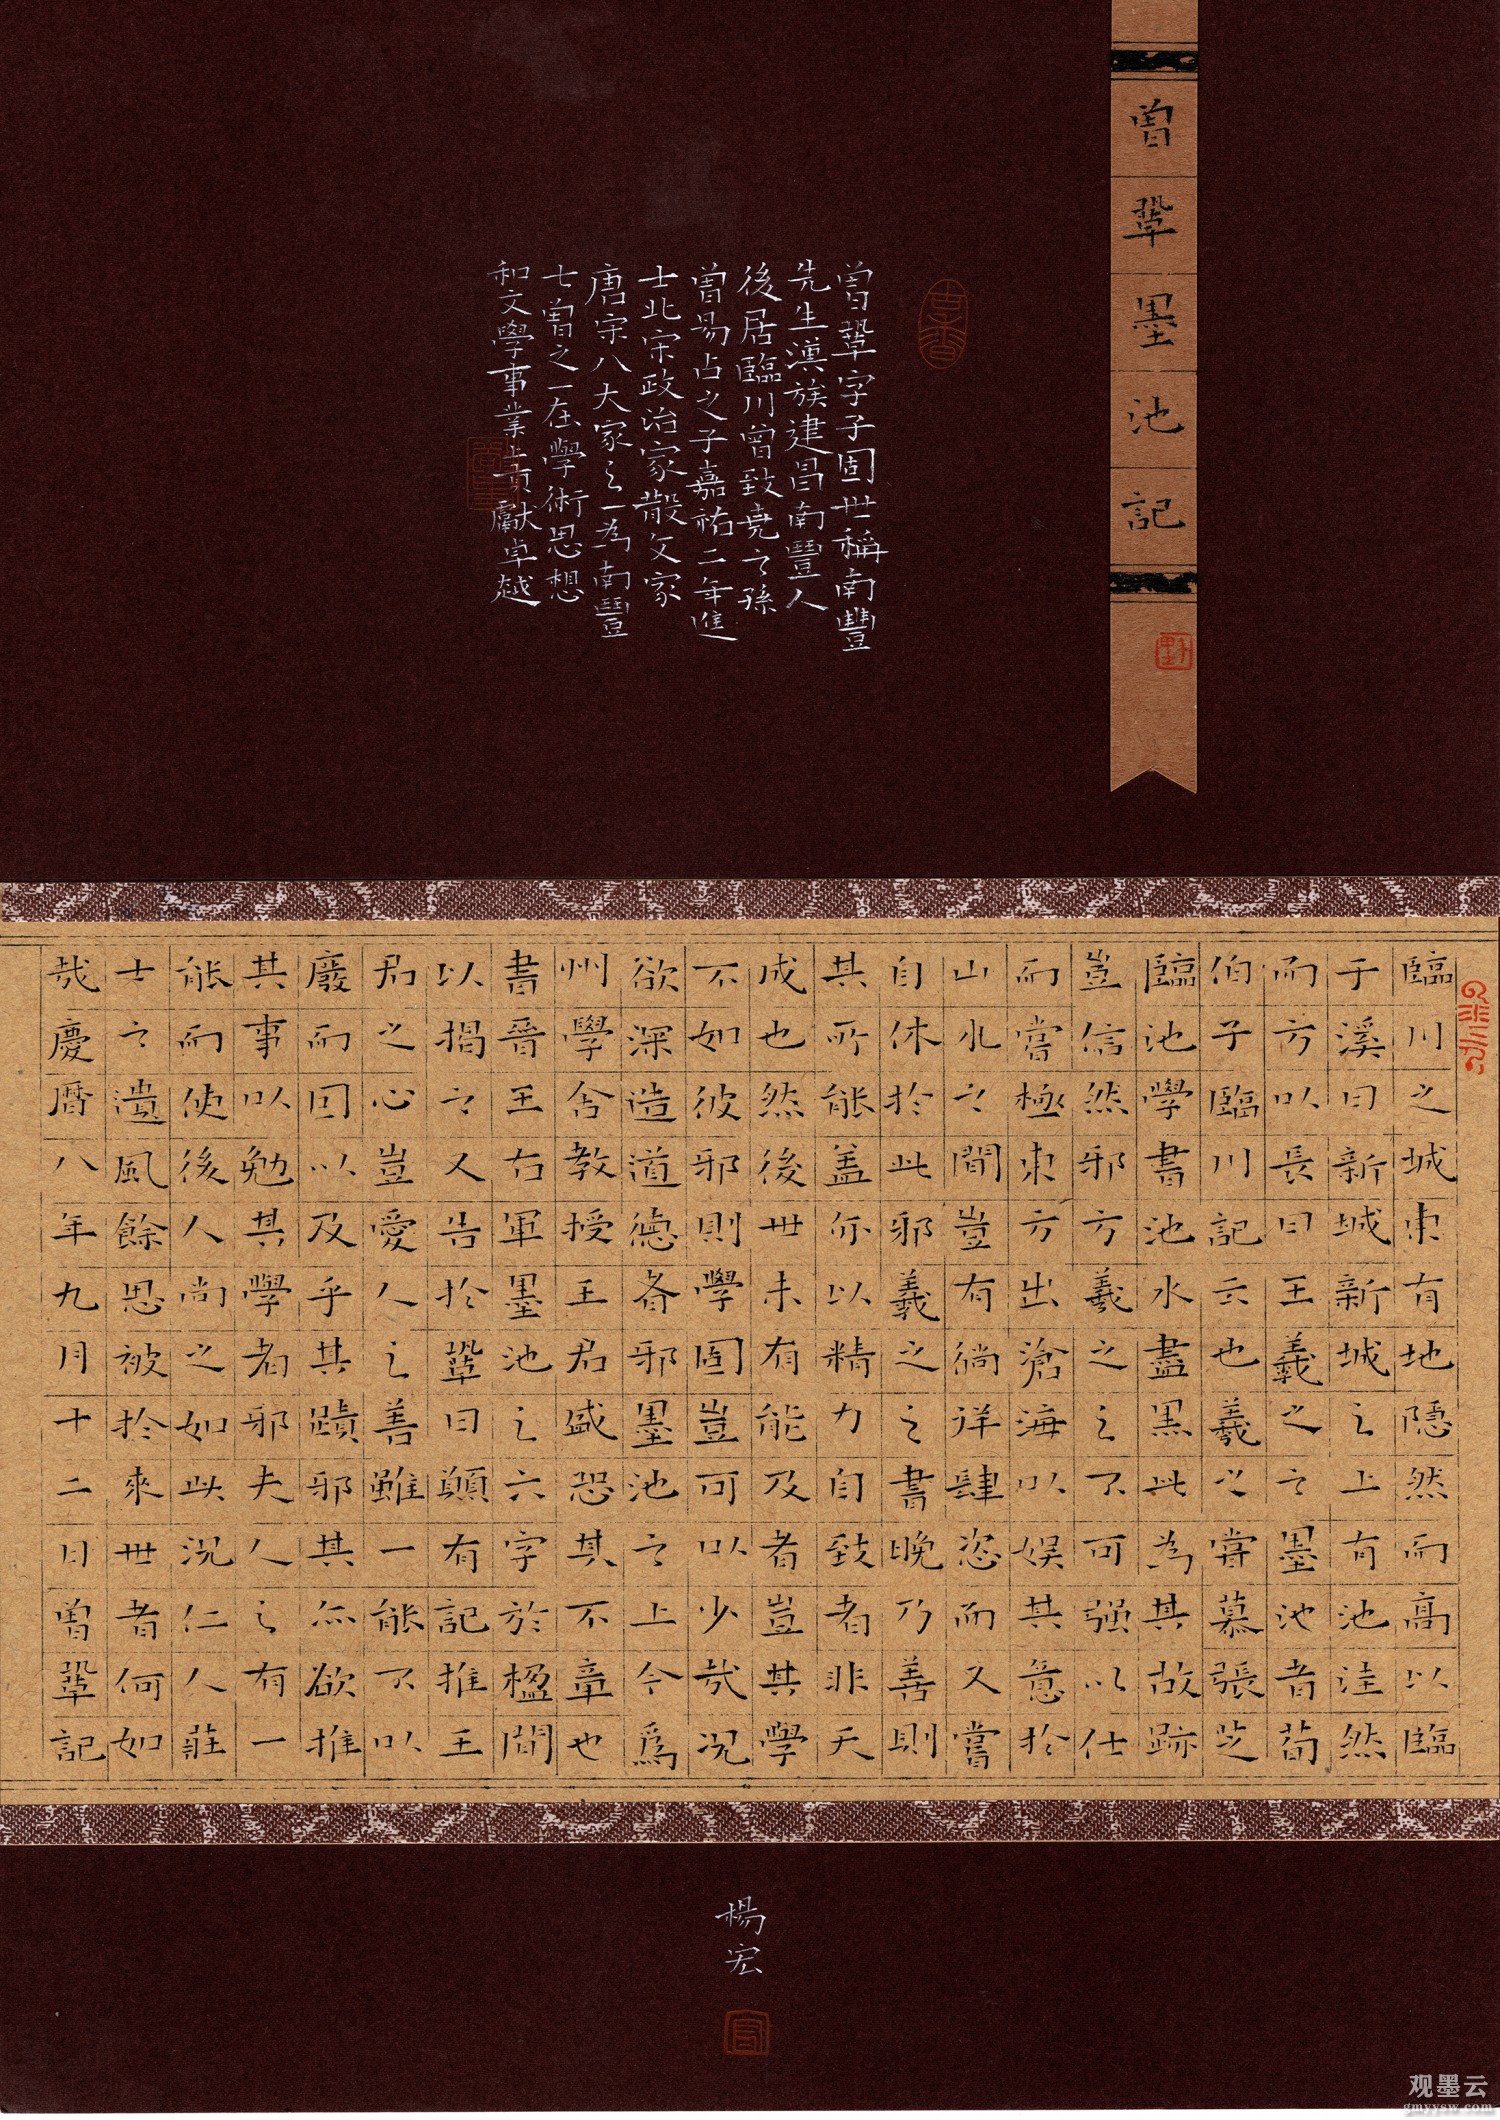 曾鞏墨池記
曾鞏字子固世稱南豐
先生漢族建昌南豐人
後居臨川曾致堯之孫
曾易占之子嘉祐二年進
士北宋政治家散文家
唐宋八大家之一為南豐
七曾之一在學術思想
和文學事業上貢獻卓越
臨川之城東有地隱然而高以臨
于溪曰新城新城之上有池洼然
而方以長曰王羲之之墨池者荀
伯子臨川記云也羲之嘗慕張芝
臨池學書池水盡黑此為其故跡
豈信然邪方羲之之不可强以仕
而嘗極東方出滄海以娛其意於
山水之間豈有徜徉肆恣而又嘗
自休於此邪羲之之書晚乃善則
其所能盖亦以精力自致者非天
成也然後世未有能及者豈其學
不如彼邪則學固豈可以少哉況
欲深造道德者邪墨池之上今爲
州學舍教授王君盛恐其不章也
書晉王右軍墨池之六字於楹間
以揭之又告於鞏曰願有記推王
君之心豈愛人之善雖一能不以
廢而因以及乎其蹟邪其亦欲推
其事以勉其學者邪夫人之有一
能而使後人尚之如此況仁人莊
士之遺風餘思被於來世者何如
哉慶曆八年九月十二日曾鞏記
楊宏
观墨云
gmyysw.com